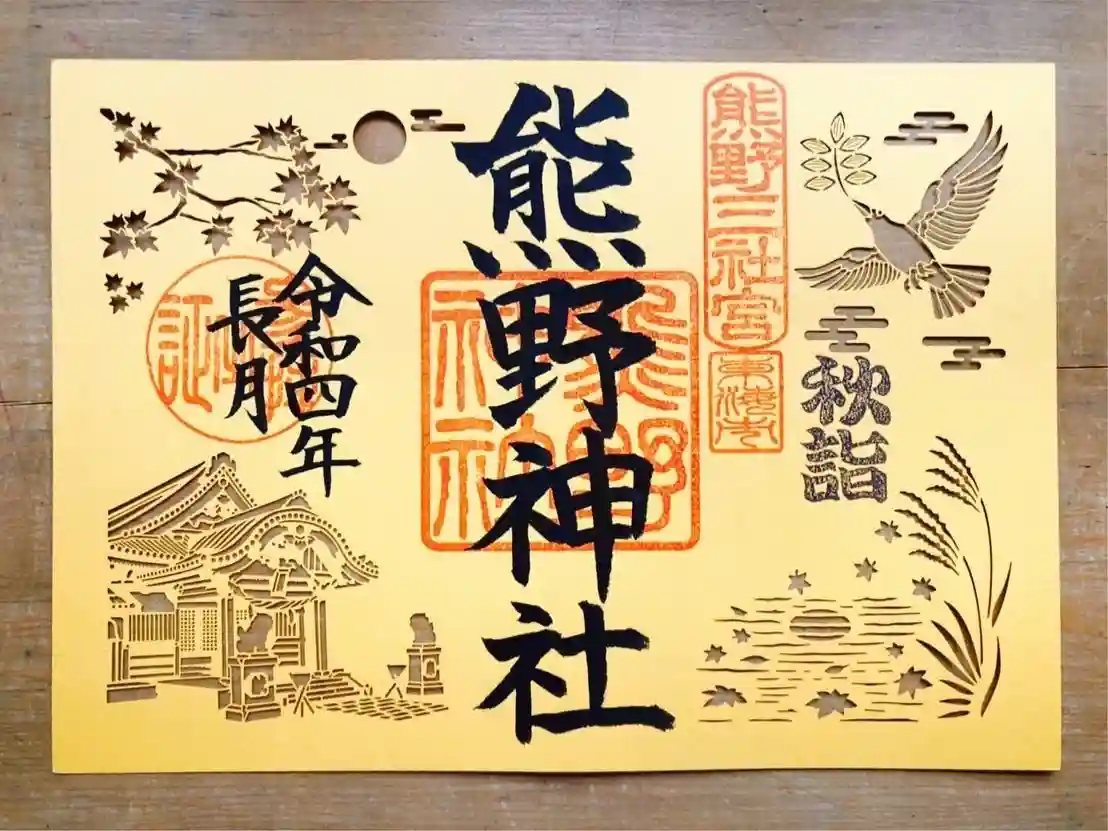 秋詣
熊野三社宮
熊野神社
熊野
神社
令和四年
長月
証